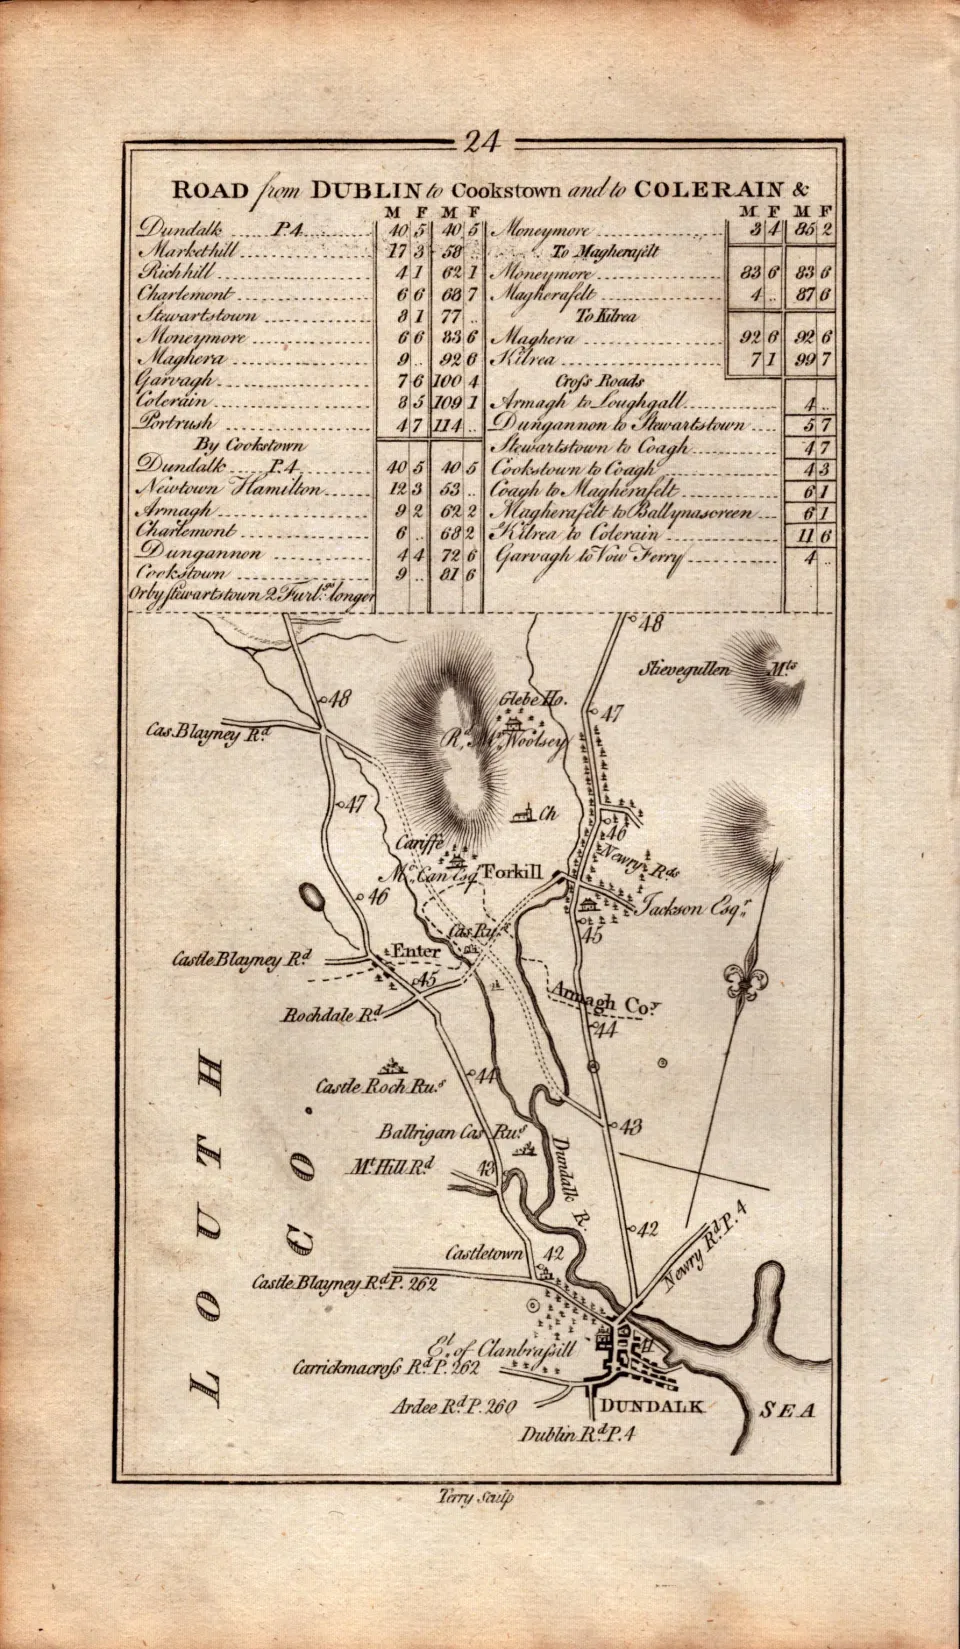 24
ROAD from DUBLIN to Cookstown and to COLERAIN &
M F M F
Dundalk P.4 40 5 40 5
Markethill 17 3 58 ..
Richhill 4 1 62 1
Charlemont 6 6 68 7
Stewartstown 8 1 77 ..
Moneymore 6 6 83 6
Maghera 9 .. 92 6
Garvagh 7 6 100 4
Colerain 8 5 109 1
Portrush 4 7 114 ..
By Cookstown
Dundalk P.4 40 5 40 5
Newtown Hamilton 12 3 53 ..
Armagh 9 2 62 2
Charlemont 6 .. 68 2
Dungannon 4 4 72 6
Cookstown 9 .. 81 6
Or by Stewartstown 2 Furl.gs longer
M F M F
Moneymore 3 4 85 2
To Magherafelt
Moneymore 83 6 83 6
Magherafelt 4 .. 87 6
To Kilrea
Maghera 92 6 92 6
Kilrea 7 1 99 7
Cross Roads
Armagh to Loughgall 4 ..
Dungannon to Stewartstown 5 7
Stewartstown to Coagh 4 7
Cookstown to Coagh 4 3
Coagh to Magherafelt 6 1
Magherafelt to Ballynascreen 6 1
Kilrea to Colerain 11 6
Garvagh to Vow Ferry 4 ..
48
Slievegullen Mts
48
Glebe Ho.
47
Cas. Blayney Rd
Rd. Mr. Woolsey
47
Ch
46
Cariffe
Newry Rds
Mc. Can Esqr
Forkill
46
Jackson Esqr.
Cas Ru.s
45
Enter
Castle Blayney Rd
45
Armagh Coy.
Rochdale Rd
44
44
Castle Roch Ru.s
43
Balrigan Cas Ru.s
Dundalk R.
43
Mt Hill Rd
LOUTH
CO.
42
Newry Rd P. 4
Castletown
42
Castle Blayney Rd P. 262
El. of Clanbrassill
Carrickmacross Rd P. 262
Ardee Rd P. 260
DUNDALK
SEA
Dublin Rd P. 4
Terry Sculp